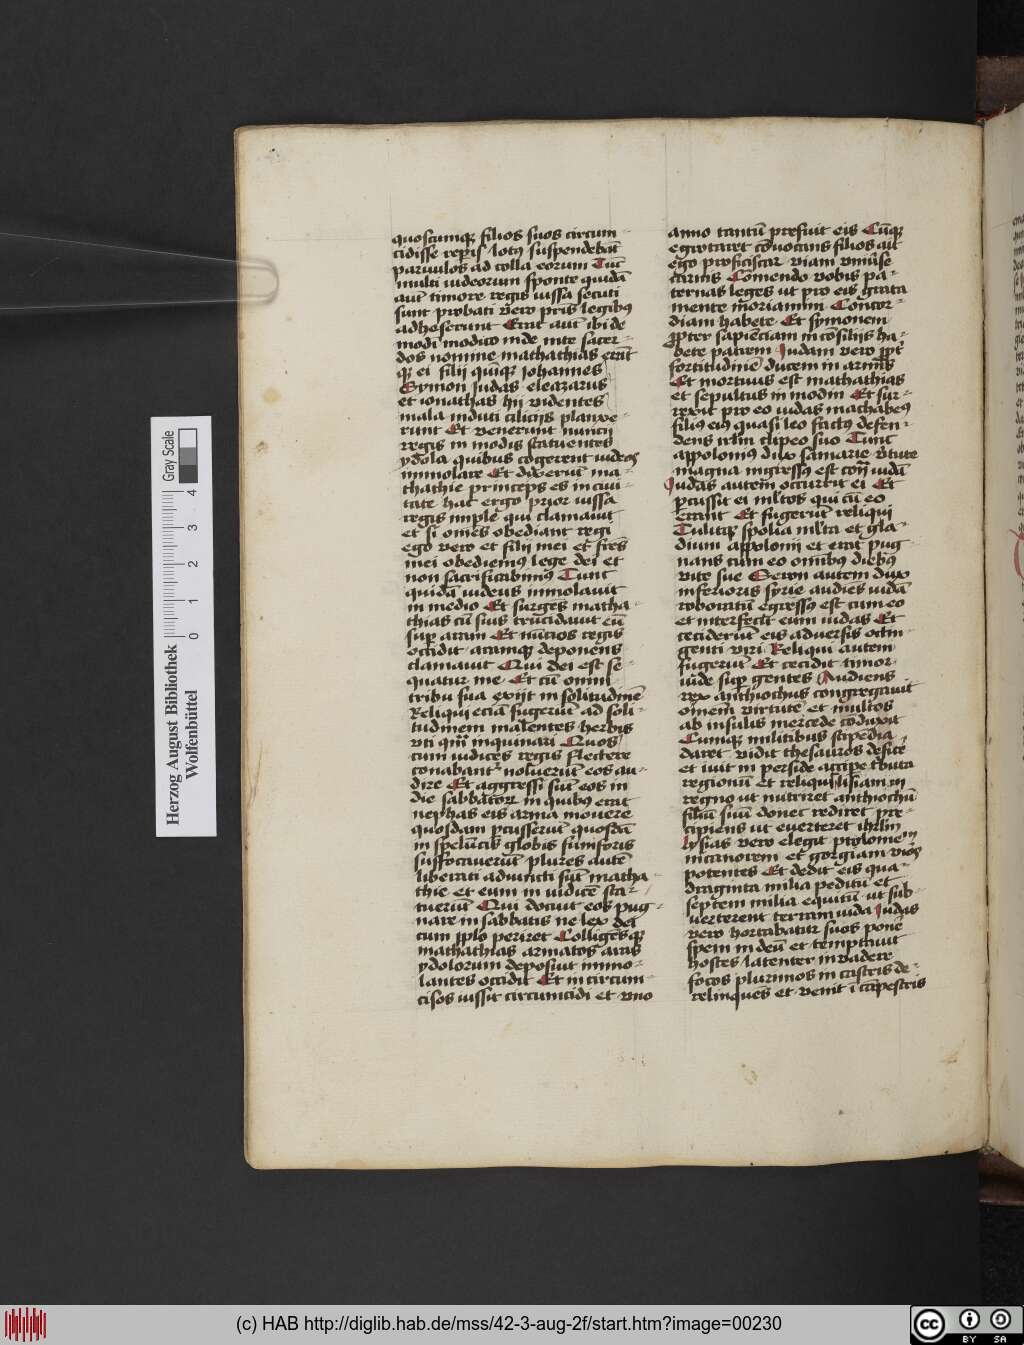 quoscumq; filios suos circum-
cidisse rep̄is locꝰ suspendebāt
paruulos ad colla eorum Tūc
multi iudeorum sponte quidā
aut̄ timore regis iussa secuti
sunt probati vero pris legibꝰ
adheserunt Erat aut̄ ibi de
modi modico inde mte sacer-
dos nomine mathathias erāt
q; ei filii quīq; iohannes
Symon Iudas eleazarus
et ionathas hij videntes
mala induti ciliciis planxe-
runt Et venerunt nuncii
regis in modis statuentes
ydola quibus cogerent iudeos
immolare Et dixerūt ma-
thathie princeps es in ciui-
tate hac ergo prior iussa
regis imple qui clamauit
et si om̄es obediant regi
ego vero et filii mei et fr̄es
mei obediemꝰ lege dei et
non sacrificabimꝰ Tunc
quidā iudeus immolauit
in medio Et surgēs matha-
thias cū suis trucidauit eū
suꝑ aram Et nūcios regis
occidit aramq; deponens
clamauit Qui dei est se-
quatur me Et cū omni
tribu sua exiit in solitudinē
Reliqui eciā fugerūt ad soli-
tudinem malentes herbis
vti qm̄ inquinari Quos
cum iudices regis flectere
conabantr̄ noluerūt eos au-
dire Et aggressi sūt eos in
die sabbatoꝝ in quibꝰ erat
nephas eis arma mouere
quosdam ꝑcusserūt quosdā
in spelūcis globis fumforis
suffocauerūt plures autē
liberati adiuncti sūt matha-
thie et eum in iudicē sta-
tuerūt Qui docuit eos pug-
nare in sabbatis ne lex dei
cum ip̄lo periret Colligēsq;
mathathias armatos aras
ydolorum deposuit immo-
lantes occidit Et in circum-
cisos iussit circumcidi et vno
anno tantū prefuit eis Cūq;
egrotaret cōuocans filios aīt
ego proficiscar viam vniuse
carnis Cōmendo vobis pa-
ternas leges ut pro eis grata
mente moriamini Concor-
diam habete Et symonem
ꝓpter sapienciam in cōsilijs ha-
bete patrem Iudam vero ꝓpt̄
fortitudinē ducem in armis
Et mortuus est mathathias
et sepultus in modin Et sur-
rexit pro eo iudas machabeꝰ
filiꝰ eiꝰ quasi leo factꝰ defen-
dens isrl̄m clipeo suo Tunc
appoloniꝰ dux samarie v̄tute
magna ingressꝰ est contra iudā
Iudas autem occurrit ei Et
ꝑcussit ei ml̄tos qui cū eo
erant Et fugerūt reliqui
Tulitq; spolia ml̄ta et gla-
dium appolonii et erat pug
nans cum eo omībꝰ diebꝰ
vite sue Seron autem dux
inferioris syrie audiēs iudā
roboratū egressꝰ est cum eo
et interfecit eum iudas Et
ceciderūt eis aduersis octin-
genti viri Reliqui autem
fugerūt Et cecidit timor
iude suꝑ gentes Audiens
rex anthiochus congregauit
omem virtutē et multos
ab insulis mercede cōduxit
Cumq; militibus stipēdia
daret vidit thesauros deficē
et iuit in perside accipe t̄buta
regionū et reliquit lisiam in
regno ut nutriret anthiochū
filiū suū donec rediret pre-
cipiens ut euerteret ihrl̄m
lysias vero elegit ptolomeūm
nicanorem et gorgiam viros
potentes Et dedit eis qua-
draginta milia peditū et
septem milia equitū ut sub-
uerterent terram iuda Iudas
vero hortabatur suos ponē
spem in deū et temptauit
hostes latenter inuadere
focos plurimos in castris de-
relinquēs et venit ī cāpestris
Herzog August Bibliothek
Wolfenbüttel
0 1 2 3 4
Gray Scale
(c) HAB http://diglib.hab.de/mss/42-3-aug-2f/start.htm?image=00230
cc BY SA